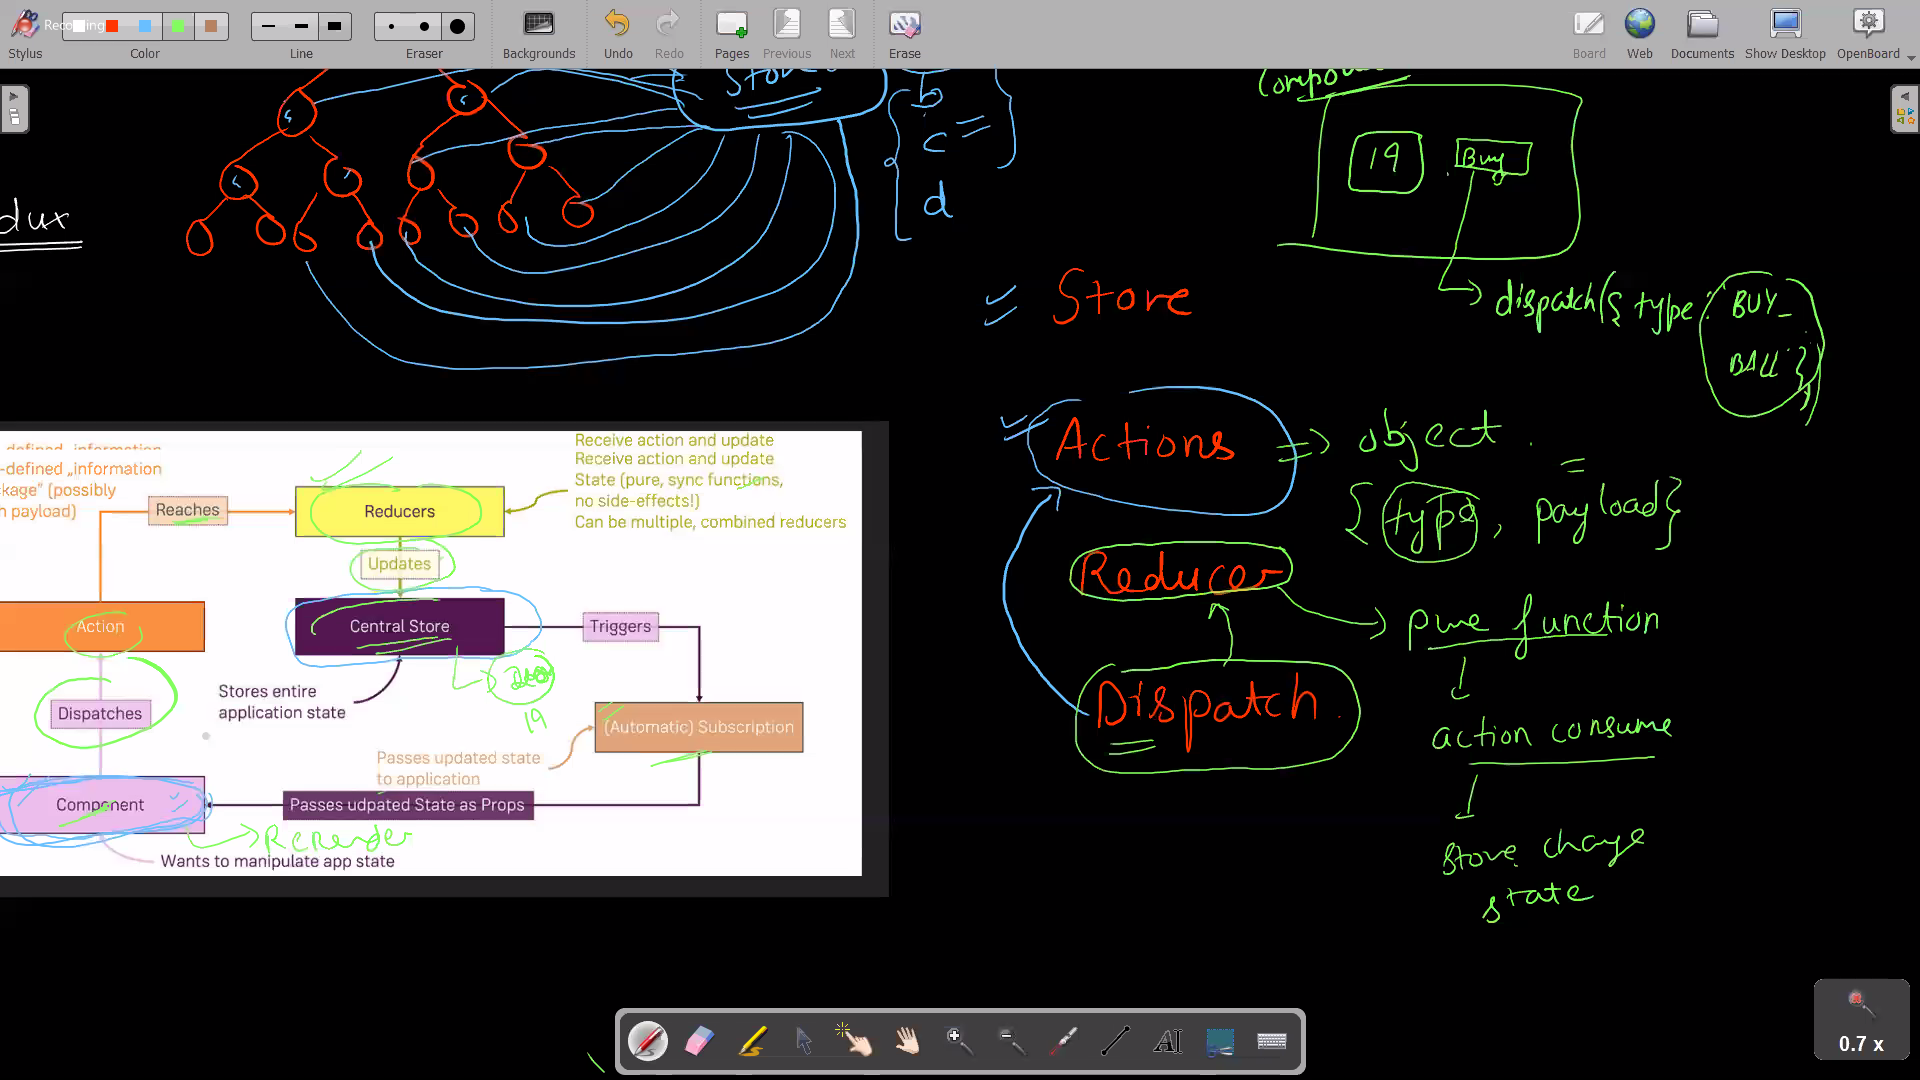 Recording
Stylus
Color
Line
Eraser
Backgrounds
Undo
Redo
Pages
Previous
Next
Erase
Board
Web
Documents
Show Desktop
OpenBoard
Store
b
c
d
dux
19
Buy
dispatch({ type: BUY_
BALL })
Store
Actions => object
{ type, payload }
Reducer
pure function
Dispatch
action consume
store change
state
-defined „information
kage” (possibly
h payload)
Reaches
Reducers
Receive action and update
Receive action and update
State (pure, sync functions,
no side-effects!)
Can be multiple, combined reducers
Updates
Action
Central Store
Triggers
19
Stores entire
application state
Dispatches
(Automatic) Subscription
Passes updated state
to application
Component
Passes udpated State as Props
ReRender
Wants to manipulate app state
0.7 x